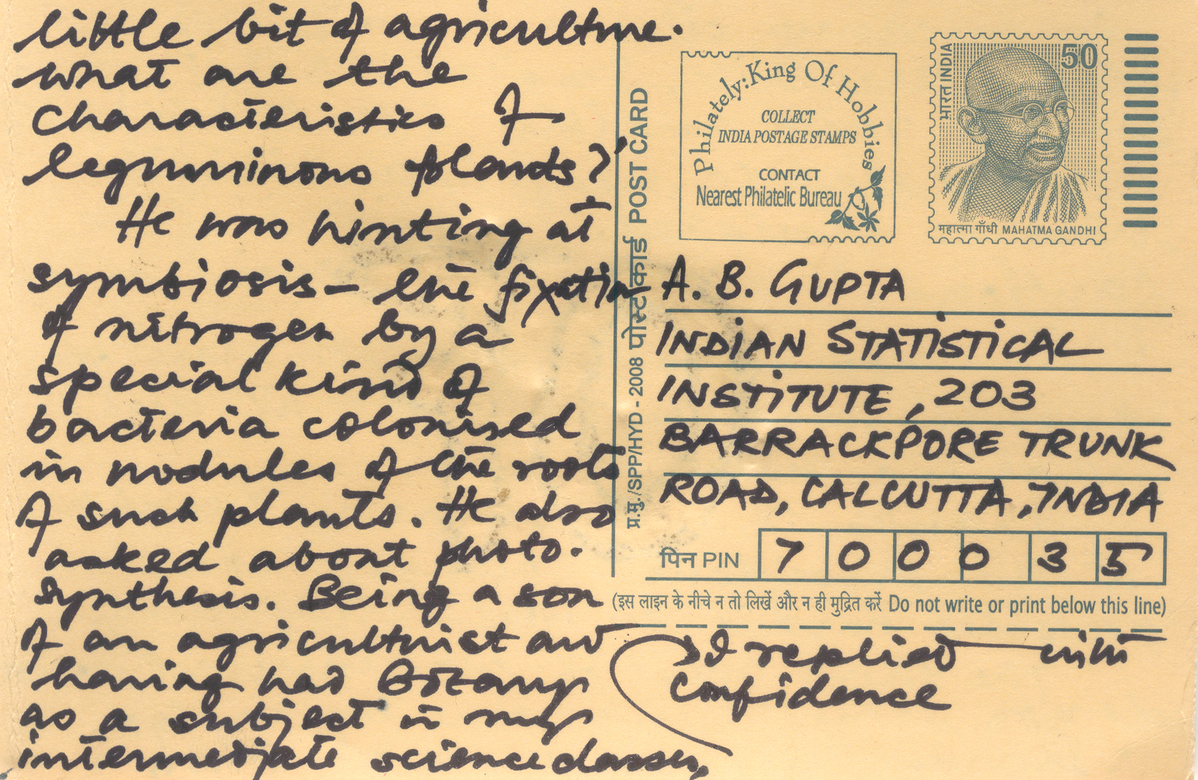 little bit of agriculture.
What are the
characteristics of
leguminous plants?'
He was hinting at
symbiosis – the fixation
of nitrogen by a
special kind of
bacteria colonised
in nodules of the roots
of such plants. He also
asked about photo-
synthesis. Being a son
of an agriculturist and
having had Botany
as a subject in my
intermediate science classes,
I replied with
confidence
प्र.मु./SPP/HYD - 2008 पोस्ट कार्ड POST CARD
Philately: King Of Hobbies
COLLECT
INDIA POSTAGE STAMPS
CONTACT
Nearest Philatelic Bureau
भारत INDIA
50
महात्मा गाँधी MAHATMA GANDHI
A. B. GUPTA
INDIAN STATISTICAL
INSTITUTE, 203
BARRACKPORE TRUNK
ROAD, CALCUTTA, INDIA
पिन PIN 700035
(इस लाइन के नीचे न तो लिखें और न ही मुद्रित करें Do not write or print below this line)